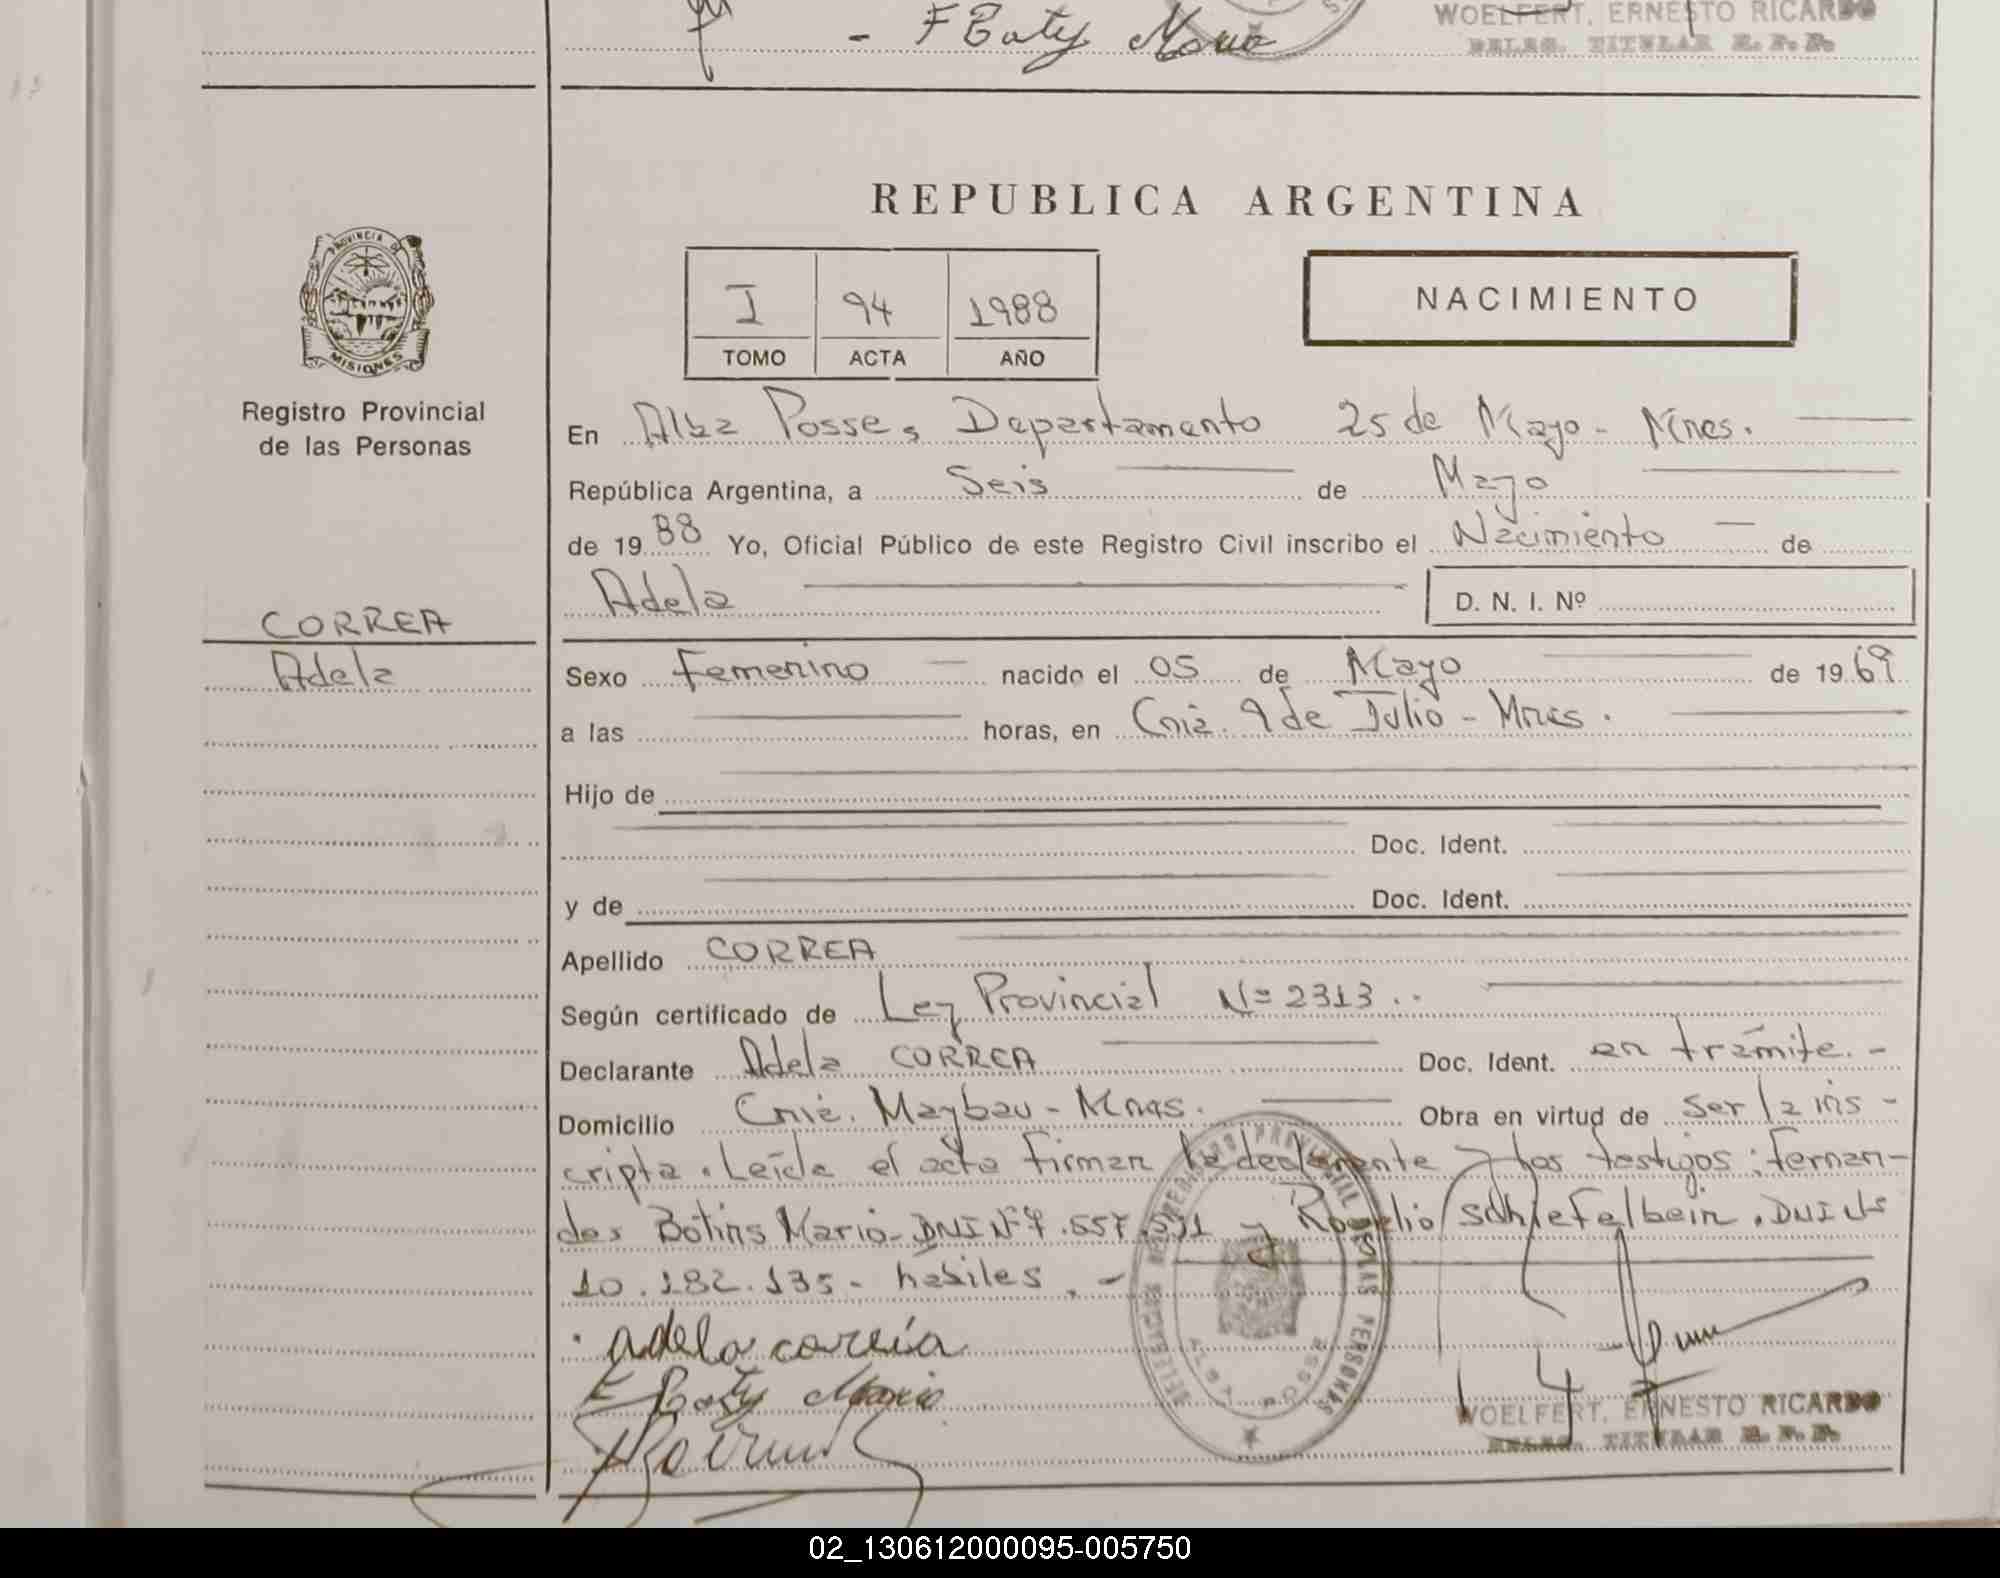 F Boty Mario
WOELFERT, ERNESTO RICARDO
DELEG. TITULAR R. P. P.
REPUBLICA ARGENTINA
PROVINCIA DE
MISIONES
Registro Provincial
de las Personas
I 94 1988
TOMO ACTA AÑO
NACIMIENTO
En Alba Posse, Departamento 25 de Mayo - Mnes.
República Argentina, a Seis de Mayo
de 1988 Yo, Oficial Público de este Registro Civil inscribo el Nacimiento de
Adela D. N. I. Nº
CORREA
Adela
Sexo Femenino nacido el 05 de Mayo de 1969
a las horas, en Cnia. 9 de Julio - Mnes.
Hijo de
Doc. Ident.
y de Doc. Ident.
Apellido CORREA
Según certificado de Ley Provincial Nº 2313..
Declarante Adela CORREA Doc. Ident. en trámite. -
Domicilio Cnia. Maybau - Mnes. Obra en virtud de Ser la ins -
cripta. Leída el acta firman la declarante y los testigos: Fernan-
des Botins Mario - DNI Nº 7.557. y Rogelio Schiefelbein. DNI Nº
10.182.135 - habiles. -
adela correa
F Boty Mario
DELEGACION REGISTRO PROVINCIAL DE LAS PERSONAS
ALBA POSSE
WOELFERT, ERNESTO RICARDO
DELEG. TITULAR R. P. P.
02_130612000095-005750